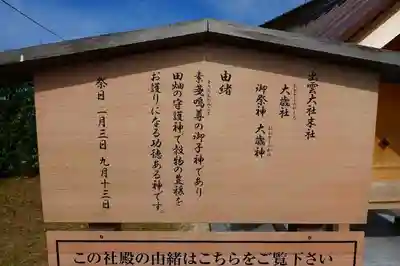 出雲大社末社
大歳社
御祭神 大歳神
由緒
素戔嗚尊の御子神であり
田畑の守護神で穀物の豊穣を
お護りになる功徳ある神です。
祭日 一月三日 九月十三日
この社殿の由緒はこちらをご覧下さい